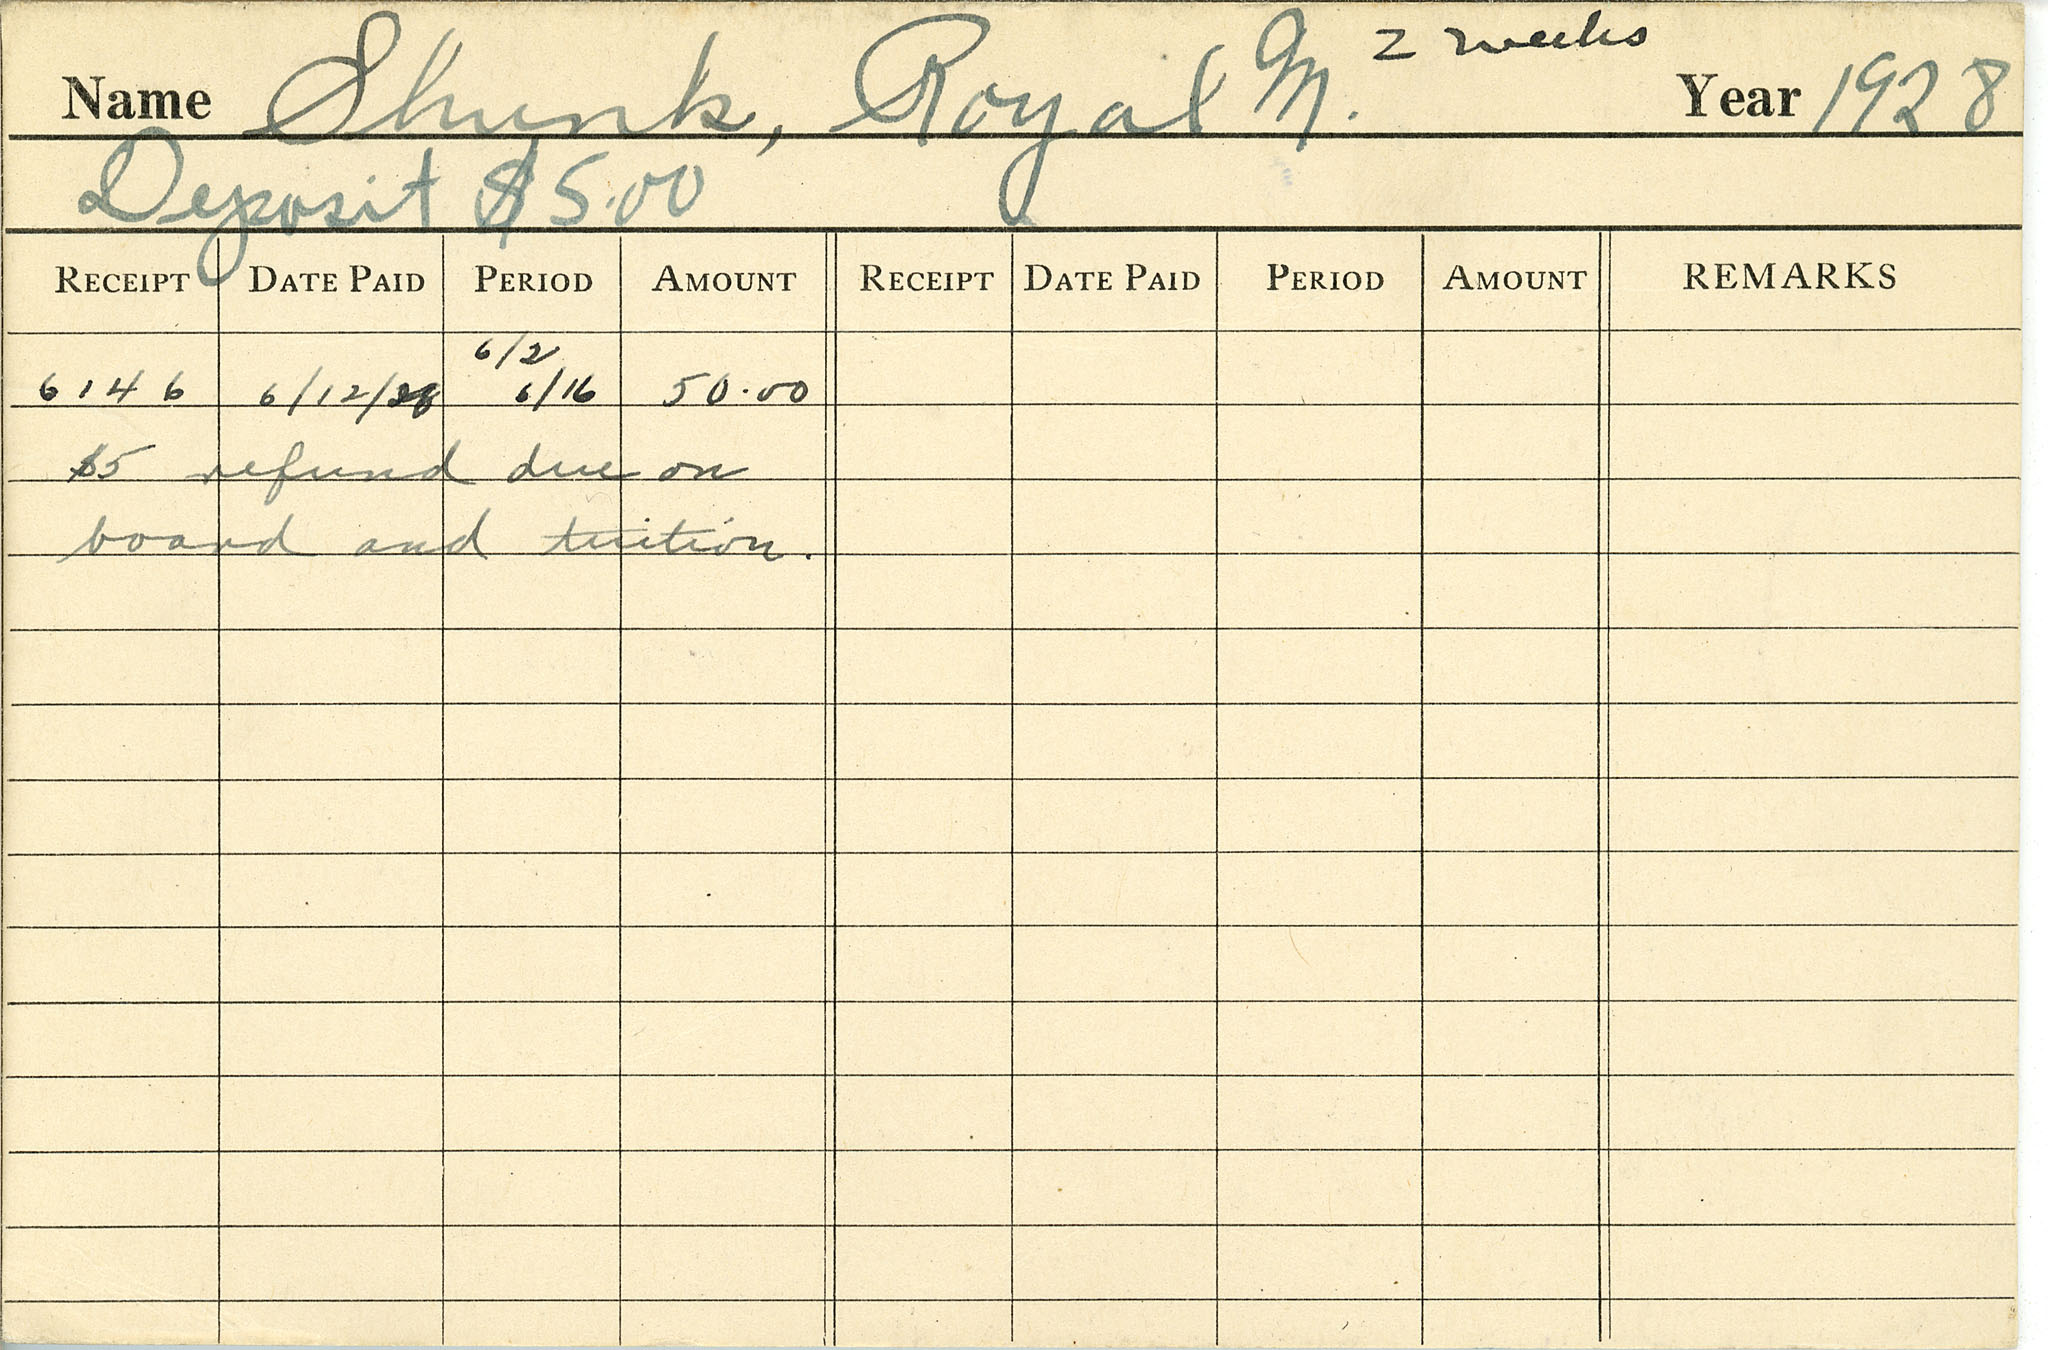 2 weeks
Name Shunk, Royal M. Year 1928
Deposit $5.00
RECEIPT DATE PAID PERIOD AMOUNT RECEIPT DATE PAID PERIOD AMOUNT REMARKS
6/2
6146 6/12/28 6/16 50.00
$5 refund due on
board and tuition.